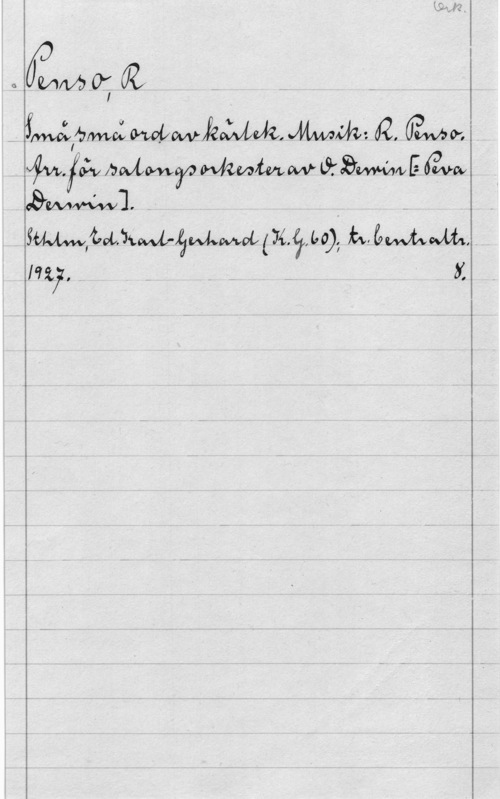 Ork.
Penso, R
Små, små ord av kärlek. Musik: R. Penso.
Arr. för salongsorkester av P. Derwin [= Peva
Derwin].
Sthlm, Ed. Karl-Gerhard (K.G. 60); tr. Centraltr.
1927. 8.